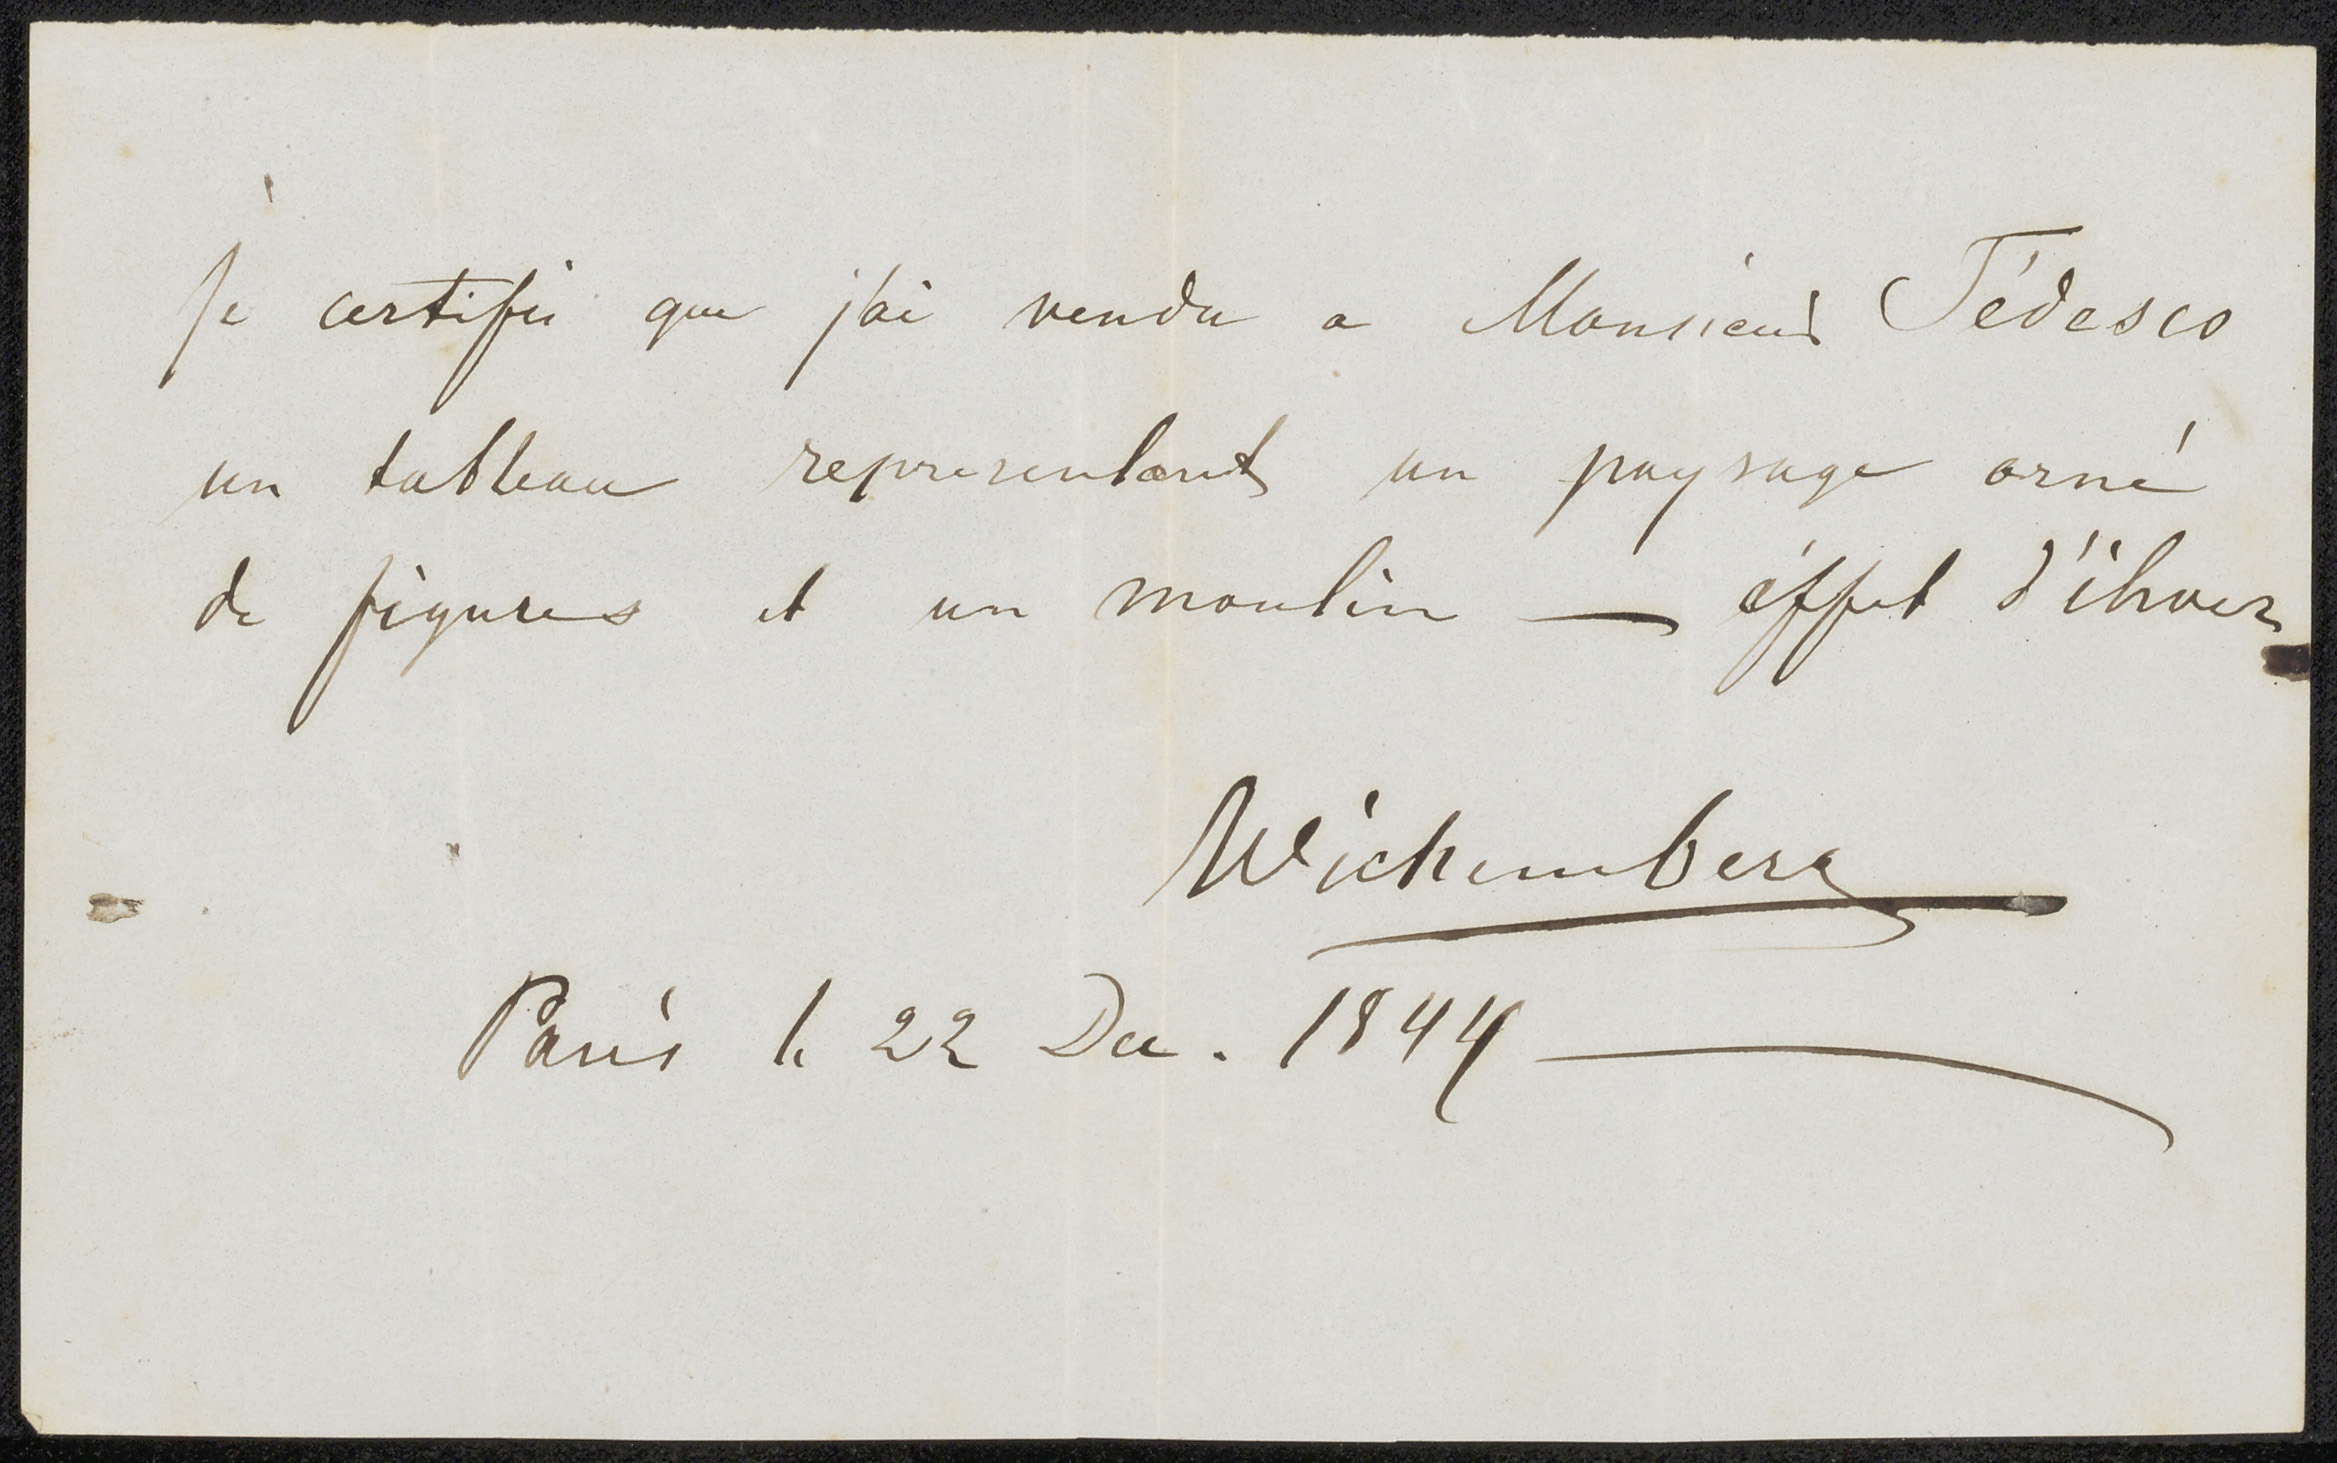 Je certifie que j'ai vendu a Monsieur Tédesco
un tableau representant un paysage orné
de figures et un moulin — éffet d'ihver
Wickemberg
Paris le 22 Dec. 1844